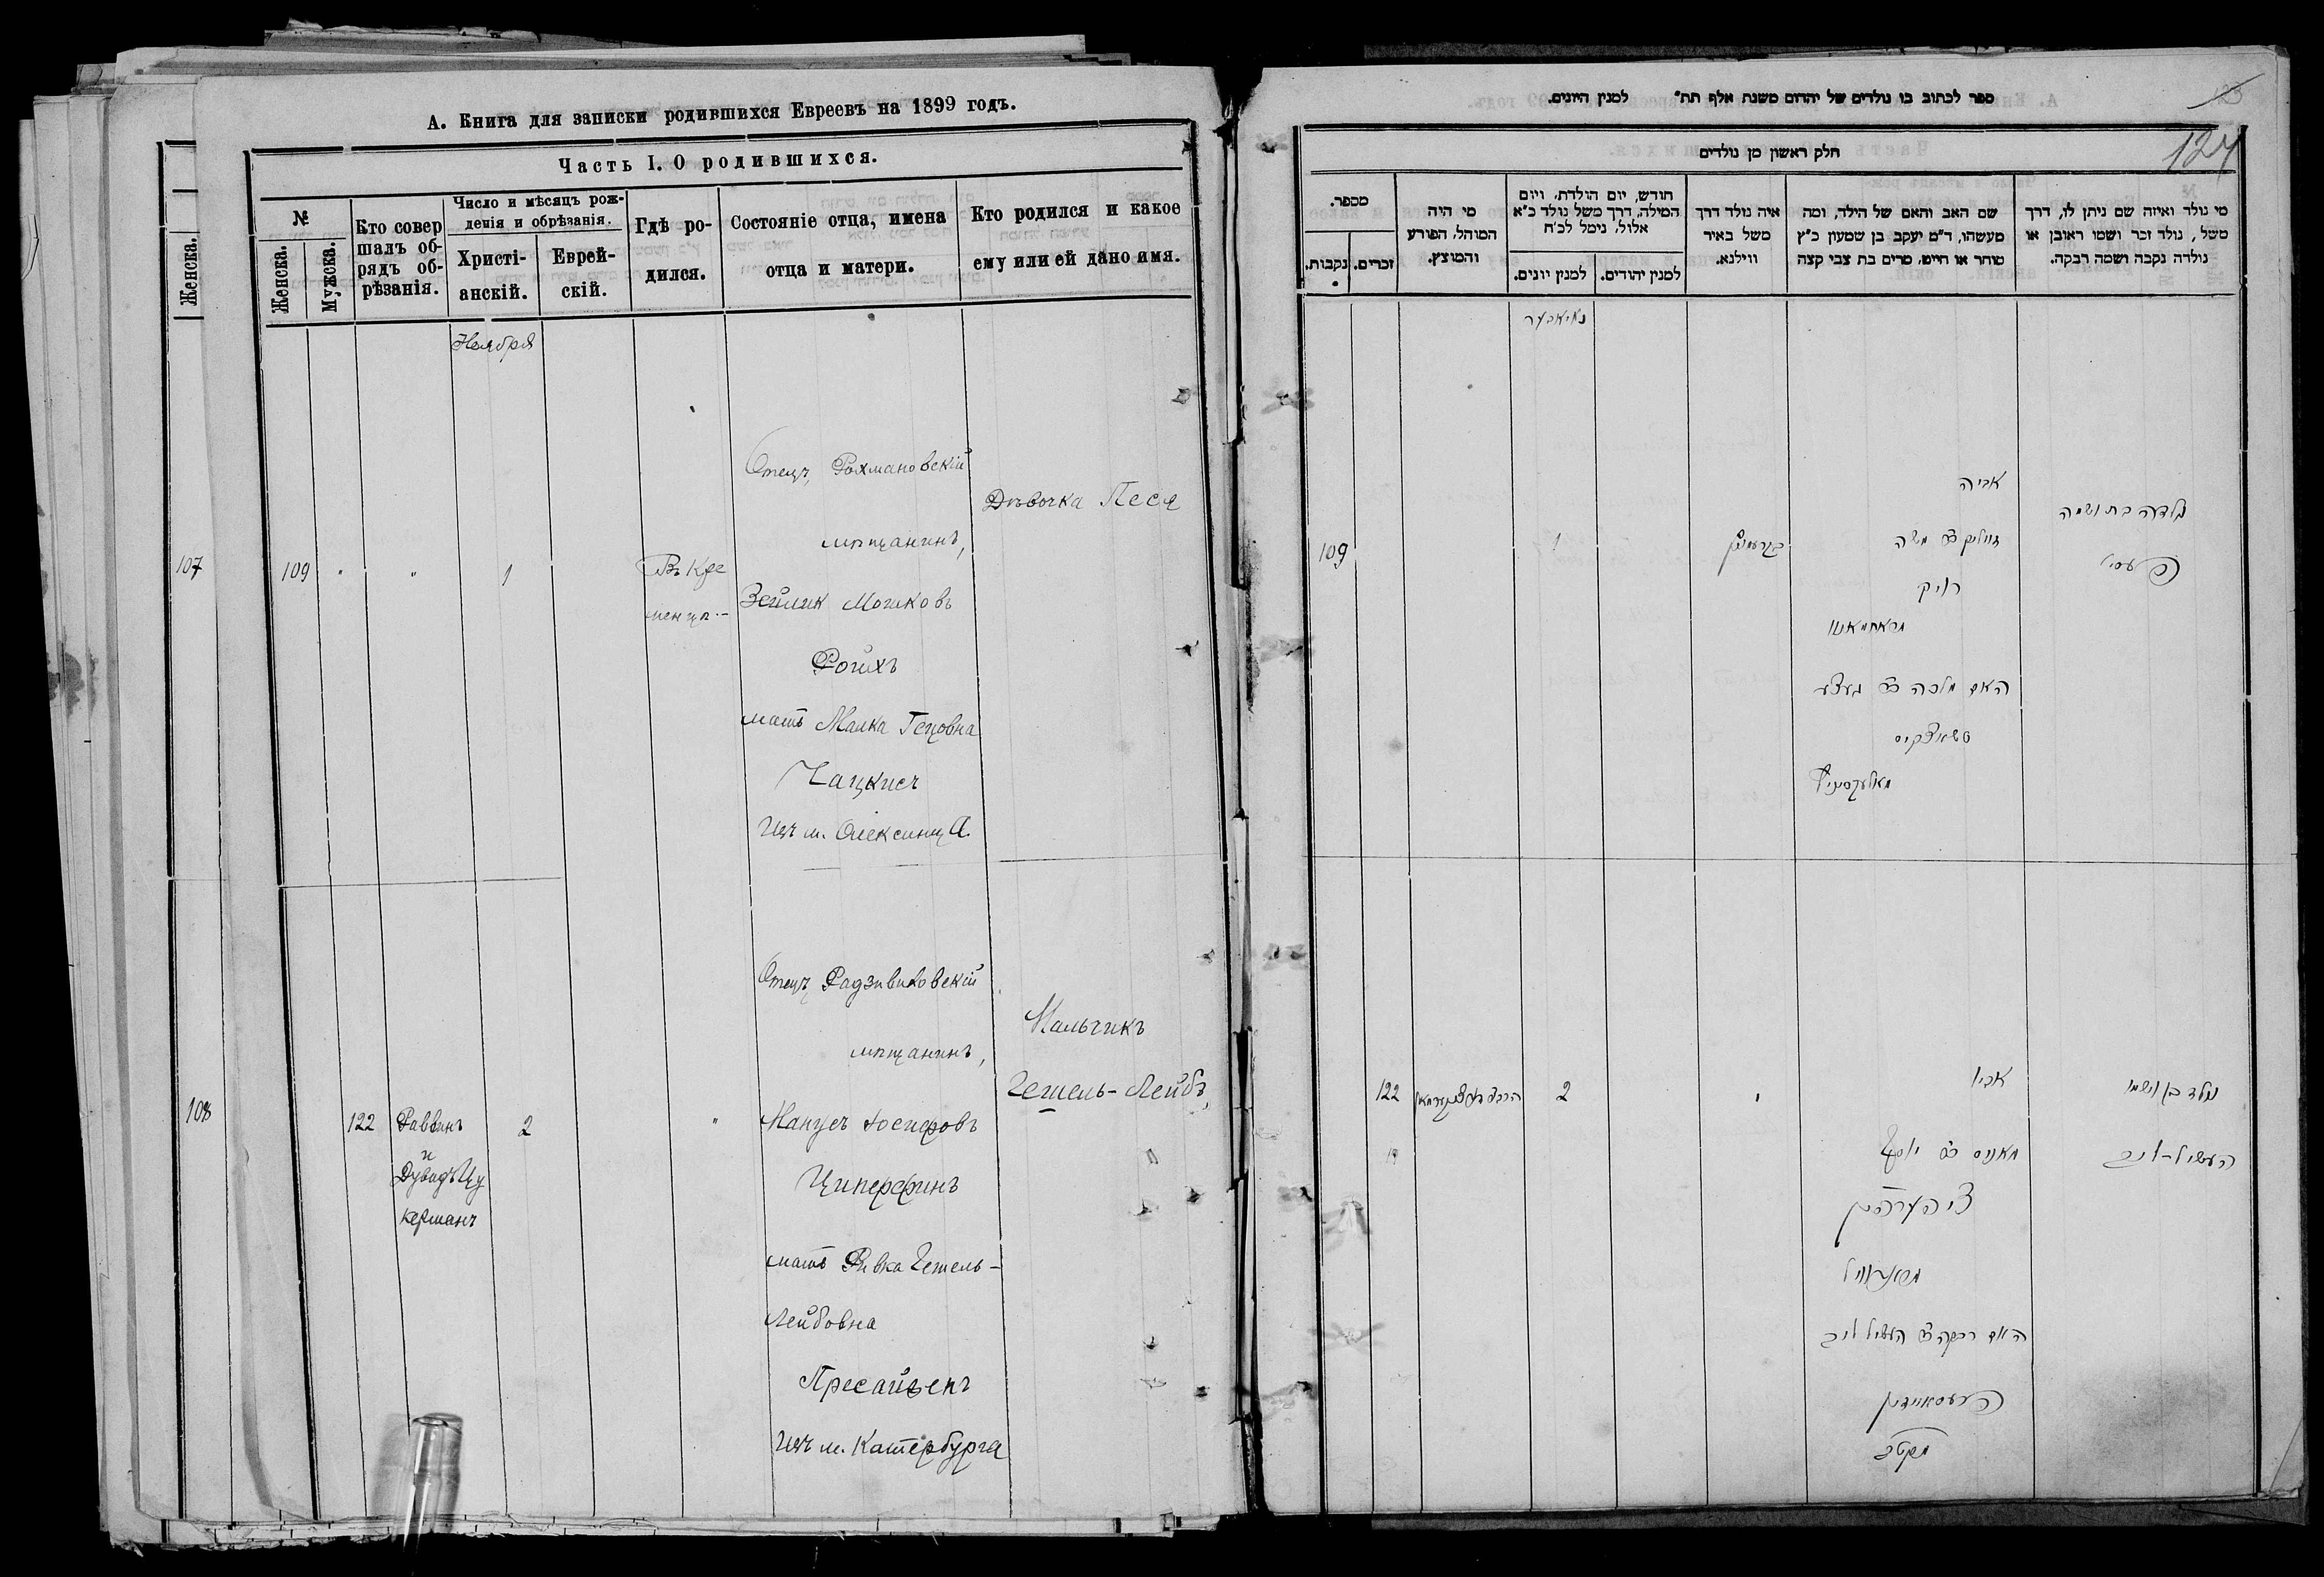 А. Книга для записки родившихся Евреевъ на 1899 годъ.
Часть I. О родившихся.
№
Женска.
Мужска.
Кто совер
шалъ об-
рядъ об-
рѣзанія.
Число и мѣсяцъ рож-
денія и обрѣзанія.
Христі-
анскій.
Еврей-
скій.
Гдѣ ро-
дился.
Состояніе отца, имена
отца и матери.
Кто родился и какое
ему или ей дано имя.
Женска.
107
108
Ноября
109
"
"
1
Въ Кре
менцѣ.-
Отецъ, Рахмановскій
мѣщанинъ,
Зейлик Мошковъ
Ройхъ
мать Малка Гецовна
Чацкисъ
Изъ м. Олексинца.
Дѣвочка Песя
122
Раввинъ
и
Дувидъ Цу
керманъ
2
"
Отецъ Радзивиловскій
мѣщанинъ,
Манусъ Іосифовъ
Циперфинъ
мать Ривка Гешель-
Лейбовна
Изъ м. Катербурга
Мальчикъ
Гешель-Лейбъ,
ספר לכתוב בו נולדים של יהדום משנת אלף תת״ למנין היונים.
123
124
חלק ראשון מן נולדים
מספר.
נקבות.
זכרים.
מי היה
המוהל, הפורע
והמוצץ.
חודש, יום הולדת, ויום
המילה, דרך משל נולד כ״א
אלול, נימל לכ״ח
למנין יונים.
למנין יהודים.
איה נולד דרך
משל באיר
ווילנא.
שם האב והאם של הילד, ומה
מעשהו, ד״מ יעקב בן שמעון כ״ץ
סוחר או חייט, מרים בת צבי קצה
מי נולד ואיזה שם ניתן לו, דרך
משל, נולד זכר ושמו ראובן או
נולדה נקבה ושמה רבקה.
נאיאבער
109
1
אביה
משה
רויק
האם מלכה
נולדה בת ושמה
פעסי
122
2
אביו
מאנוס יוסף
ציפערפין
האם רבקה העשיל ליב
נולד בן ושמו
העשיל-ליב